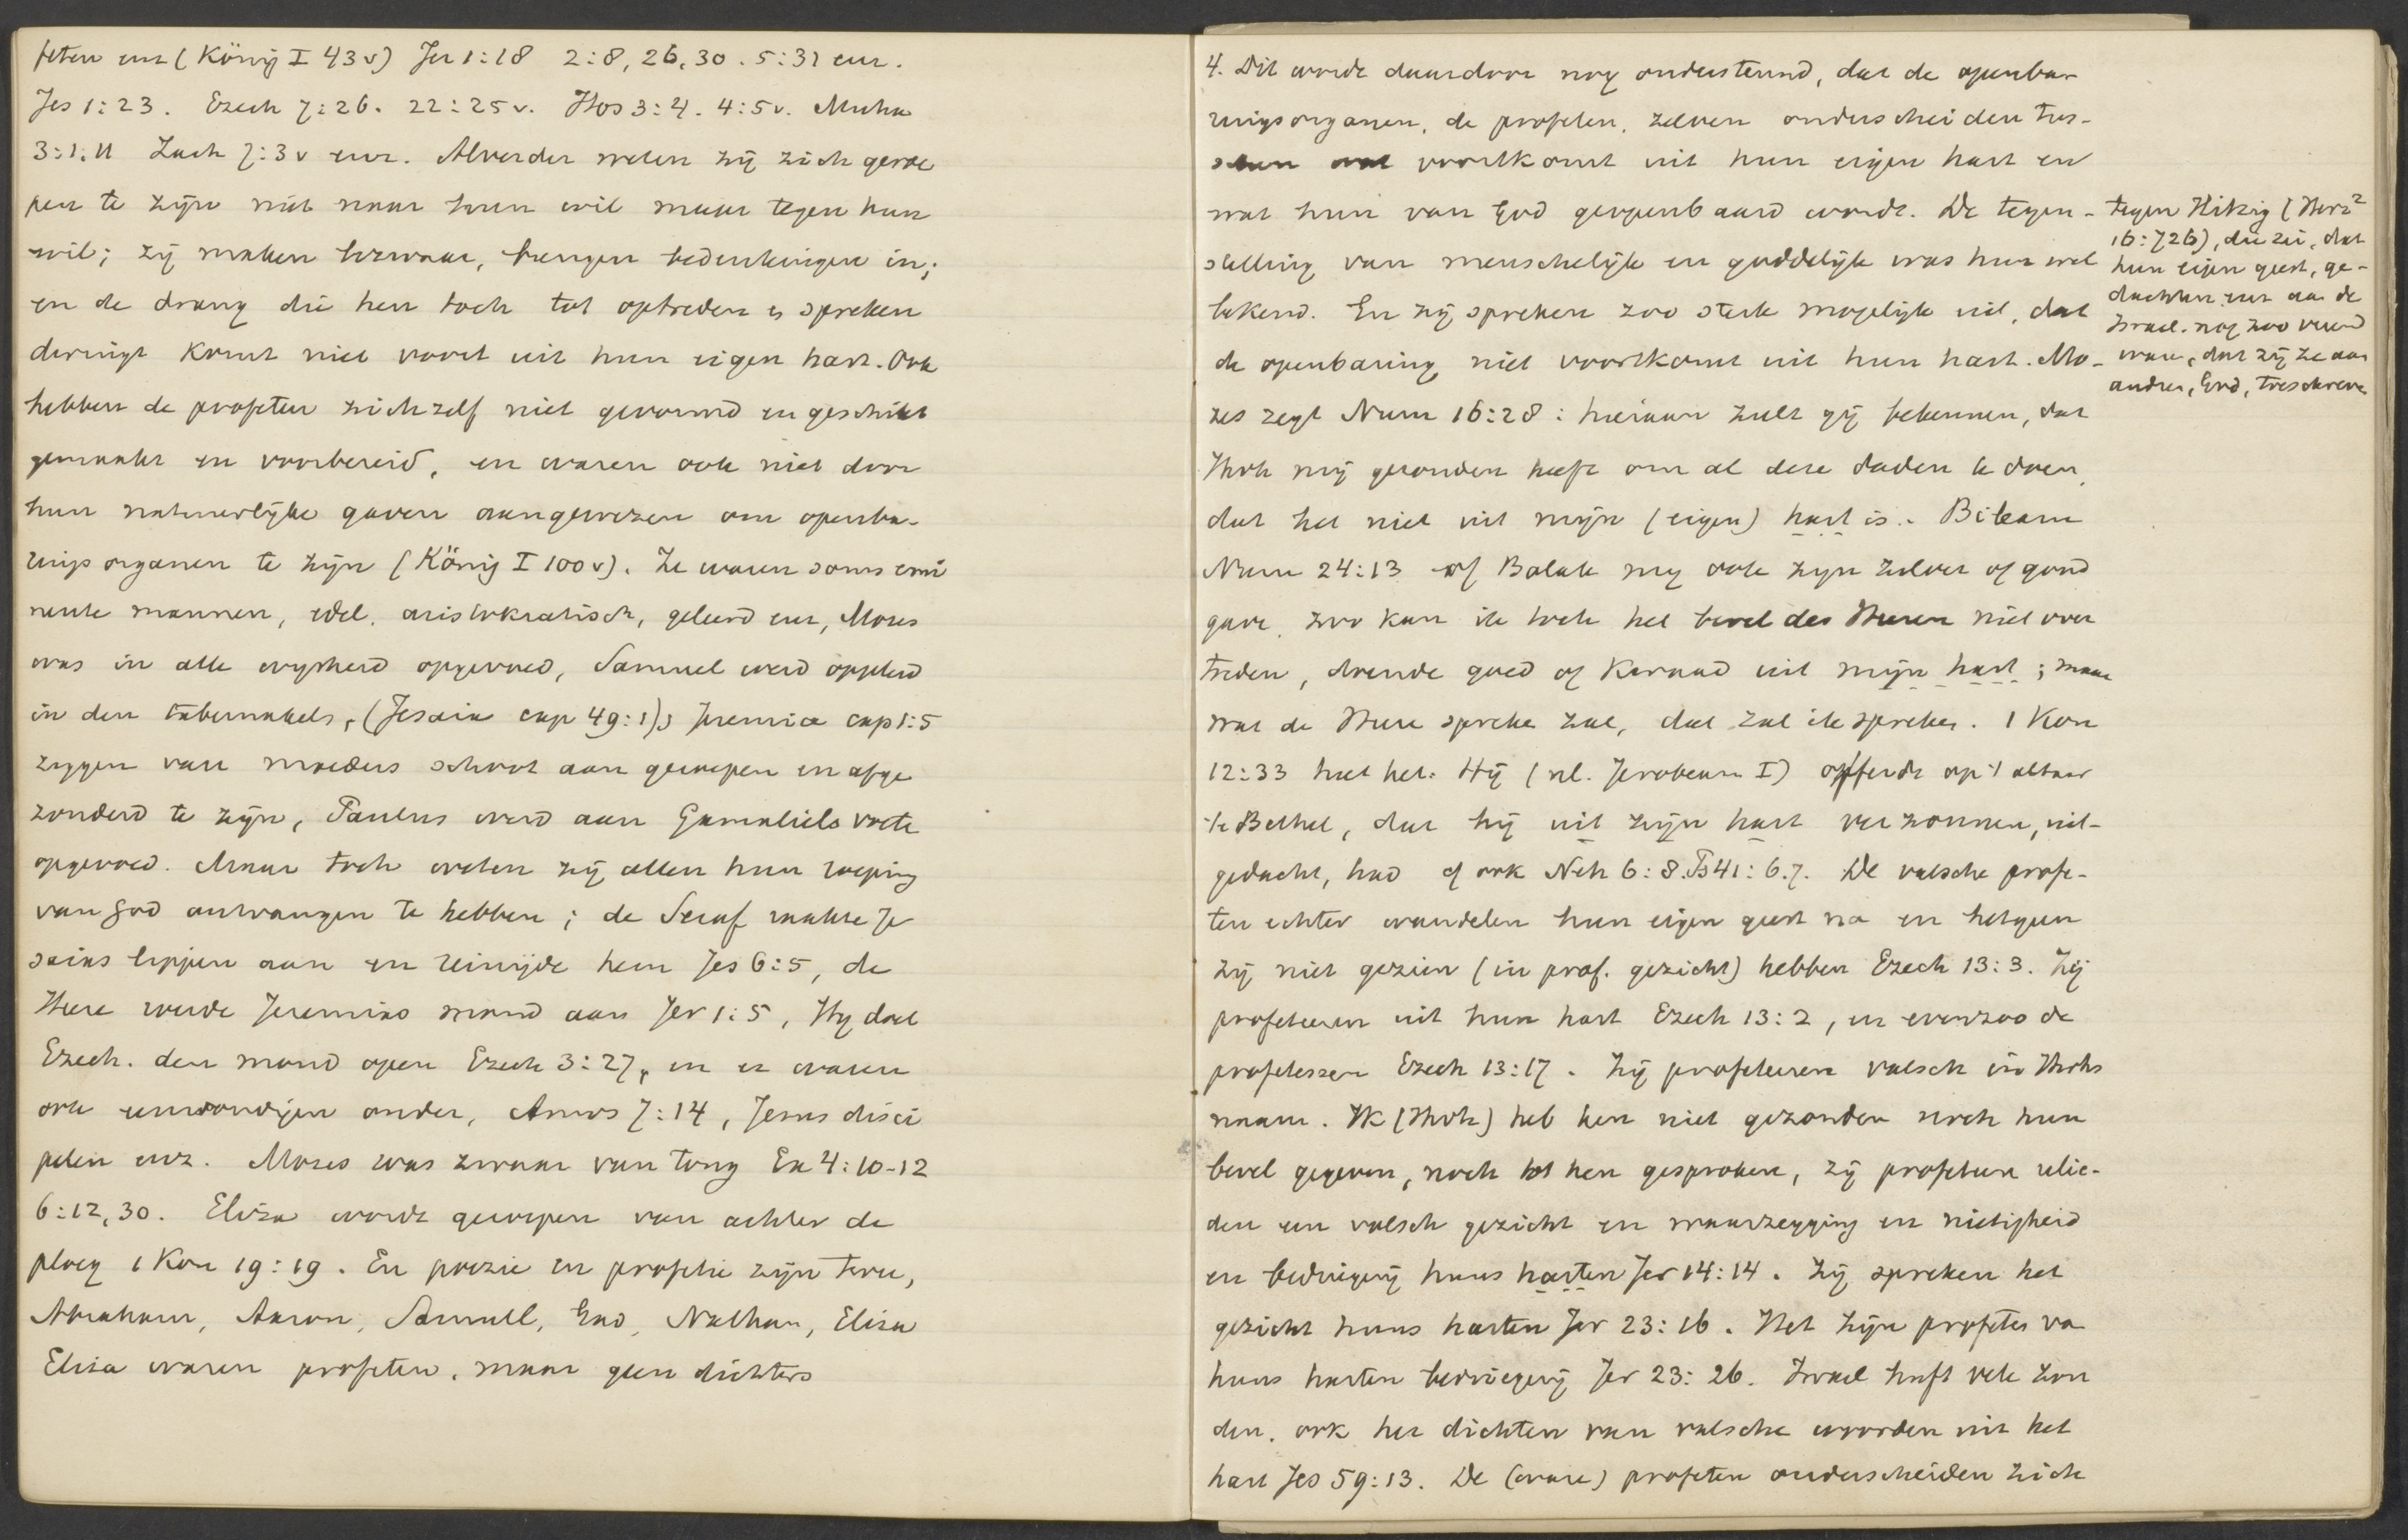 feten enz (König I 43 v) Jer 1:18 2:8, 26, 30. 5:31 enz.
Jes 1:23. Ezech 7:26. 22:25 v. Hos 3:4. 4:5 v. Micha
3:1.11 Zach 7:3 v enz. Alverder weten zij zich geroe
pen te zijn niet naar hun wil maar tegen hun
wil; zij maken bezwaar, brengen bedenkingen in;
en de drang die hen toch tot optreden en spreken
dwingt komt niet voort uit hun eigen hart. Ook
hebben de profeten zichzelf niet gevormd en geschikt
gemaakt en voorbereid, en waren ook niet door
hun natuurlijke gaven aangewezen om openba-
rings organen te zijn (König I 100 v). Ze waren soms emi
nente mannen, edel, aristokratisch, geleerd enz, Mozes
was in alle wijsheid opgevoed, Samuel werd opgeleid
in den tabernakel, (Jesaia cap 49:1), Jeremia cap 1:5
zeggen van moeders schoot aan geroepen en afge
zonderd te zijn, Paulus werd aan Gamaliels voete
opgevoed. Maar toch weten zij allen hun roeping
van God ontvangen te hebben; de Seraf raakte Je
saias lippen aan en reinigde hem Jes 6:5, de
Heere roerde Jeremias mond aan Jer 1:5, Hij doet
Ezech. den mond open Ezech 3:27, en er waren
ook eenvoudigen onder, Amos 7:14, Jezus disci
pelen enz. Mozes was zwaar van tong Ex 4:10-12
6:12, 30. Eliza wordt geroepen van achter de
ploeg 1 Kon 19:19. En poezie en profetie zijn twee,
Abraham, Aaron, Samuel, Gad, Nathan, Elia
Eliza waren profeten, maar geen dichters
4. Dit wordt daardoor nog ondersteund, dat de openba-
ringsorganen, de profeten, zelven onderscheiden tus-
schen wat voortkomt uit hun eigen hart en
wat hun van God geopenbaard wordt. De tegen-
stelling van menschelijk en goddelijk was hun wel
bekend. En zij spreken zoo sterk mogelijk uit, dat
de openbaring niet voortkomt uit hun hart. Mo-
zes zegt Num 16:28: hieraan zult gij bekennen, dat
Jhvh mij gezonden heeft om al deze daden te doen,
dat het niet uit mijn (eigen) hart is. Bileam
Num 24:13 of Balak mij ook zijn zilver of goud
gave, zoo kan ik toch het bevel des Heeren niet over
treden, doende goed of kwaad uit mijn hart; maar
wat de Heere spreken zal, dat zal ik spreken. 1 Kon
12:33 heet het: Hij (nl. Jerobeam I) offerde op 't altaar
te Bethel, dat hij uit zijn hart verzonnen, uit-
gedacht, had cf ook Neh 6:8. Ps 41:6.7. De valsche profe-
ten echter wandelen hun eigen geest na en hetgeen
zij niet gezien (in prof. gezicht) hebben Ezech 13:3. Zij
profeteeren uit hun hart Ezech 13:2, en evenzoo de
profetessen Ezech 13:17. Zij profeteeren valsch in Jhvhs
naam. Ik (Jhvh) heb hen niet gezonden noch hun
bevel gegeven, noch tot hen gesproken, zij profeteeren ulie-
den een valsch gezicht en waarzegging en nietigheid
en bedriegerij huns harten Jer 14:14. Zij spreken het
gezicht huns harten Jer 23:16. Het zijn profeten va
huns harten bedriegerij Jer 23:26. Israel heeft vele zon
den, ook het dichten van valsche woorden uit het
hart Jes 59:13. De (ware) profeten onderscheiden zich
tegen Hitzig (Herz²
16:726), die zei, dat
hun eigen geest, ge-
dachten enz aan de
Israel. nog zoo vreemd
waren, dat zij ze aan
ander, God, toeschreven